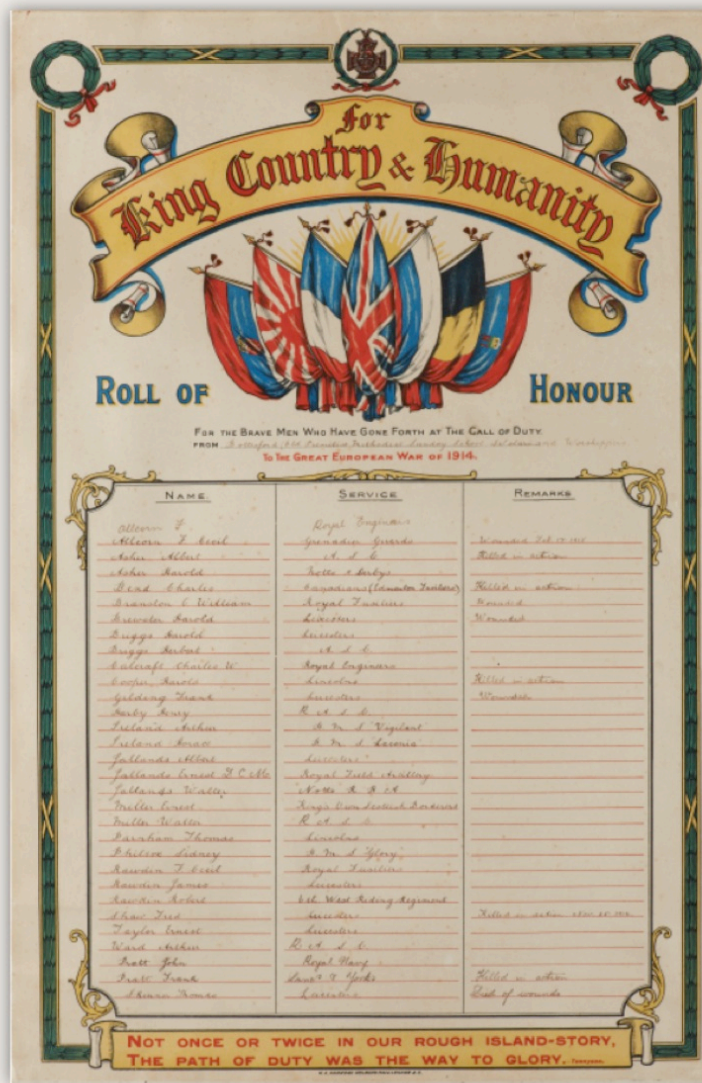 For
King Country & Humanity
ROLL OF HONOUR
FOR THE BRAVE MEN WHO HAVE GONE FORTH AT THE CALL OF DUTY
FROM Bottesford Methodist Sunday School
TO THE GREAT EUROPEAN WAR OF 1914.
NAME SERVICE REMARKS
Allcorn F. Royal Engineers
Allcorn F Cecil Grenadier Guards Wounded
Asher Albert A S C Killed in action
Asher Harold Notts & Derbys
Bend Charles Canadians Killed in action
Branston C William Royal Fusiliers Wounded
Brewster Harold Leicesters Wounded
Briggs Harold Leicesters
Briggs Herbert A S C
Calcraft Charles W Royal Engineers
Cooper Harold Lincolns Killed in action
Gelding Frank Leicesters Wounded
Henry R A S C
Ireland Arthur H M S 'Vigilant'
Ireland Horace H M S 'Laconia'
Jallands Albert Leicesters
Jallands Ernest Royal Field Artillery
Jallands Walter Notts R H A
Miller Ernest King's Own Scottish Borderers
Miller Walter R A S C
Parnham Thomas Lincolns
Sidney H M S 'Glory'
Rawdin F Cecil Royal Fusiliers
Rawdin James Leicesters
Rawdin Robert 6th West Riding Regiment
Shaw Fred Leicesters Killed in action
Taylor Ernest Leicesters
Ward Arthur R A S C
Pratt John Royal Navy
Pratt Frank Yorks Killed in action
Thomas Leicesters Died of wounds
NOT ONCE OR TWICE IN OUR ROUGH ISLAND-STORY,
THE PATH OF DUTY WAS THE WAY TO GLORY. Tennyson.